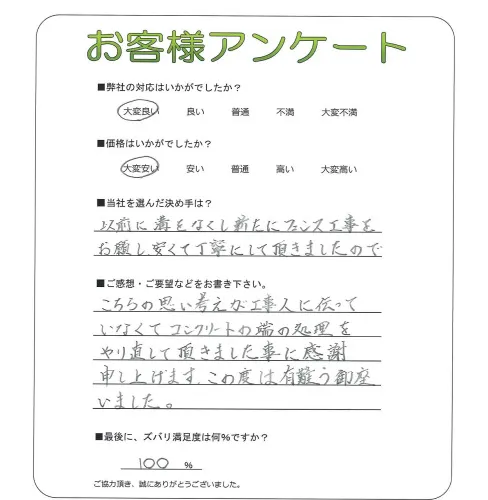 お客様アンケート
■弊社の対応はいかがでしたか？
大変良い 良い 普通 不満 大変不満
■価格はいかがでしたか？
大変安い 安い 普通 高い 大変高い
■当社を選んだ決め手は？
以前に溝をなくし新たにフェンス工事を
お願し安くて丁寧にして頂きましたので
■ご感想・ご要望などをお書き下さい。
こちらの思い考えが工事人に伝って
いなくてコンクリートの端の処理を
やり直して頂きました事に感謝
申し上げます。この度は有難う御座
いました。
■最後に、ズバリ満足度は何%ですか？
100 %
ご協力頂き、誠にありがとうございました。